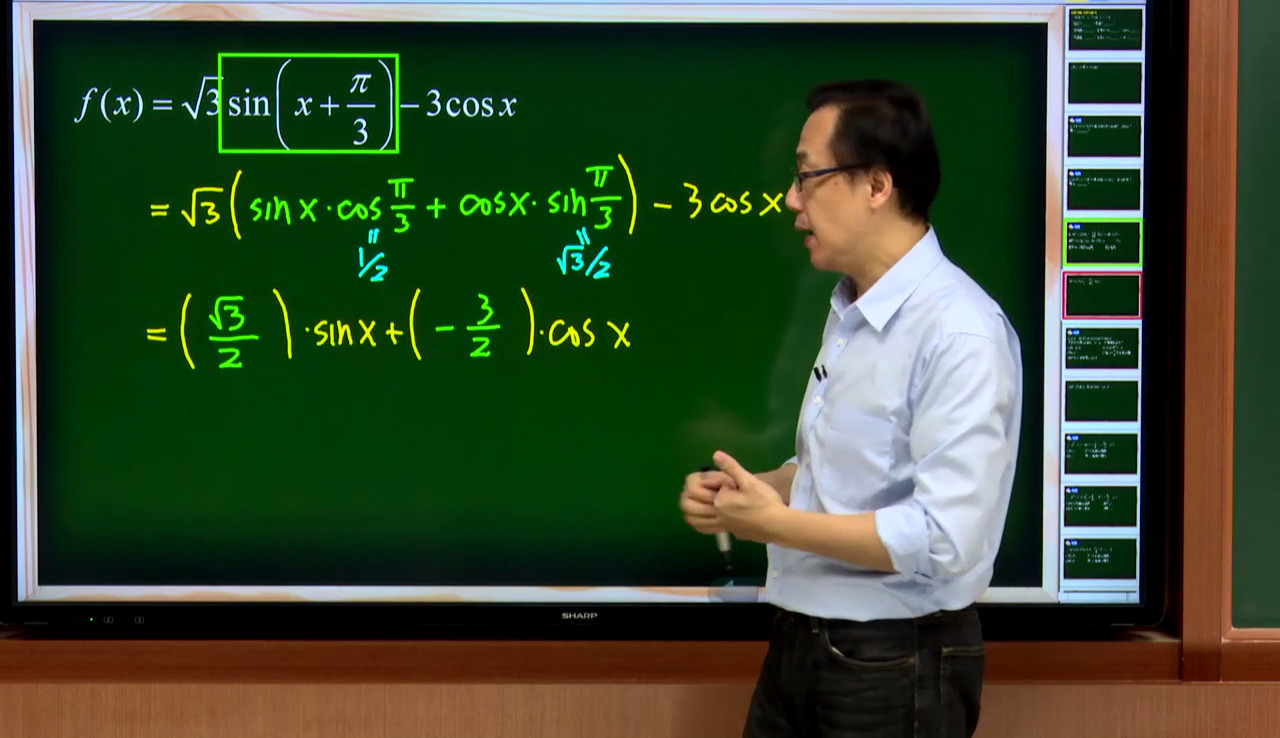 f(x) = √3 sin(x + π/3) − 3cos x
= √3 (sin x · cos π/3 + cos x · sin π/3) − 3 cos x
" 1/2 " √3/2
= (√3/2) · sin x + (− 3/2) · cos x
SHARP